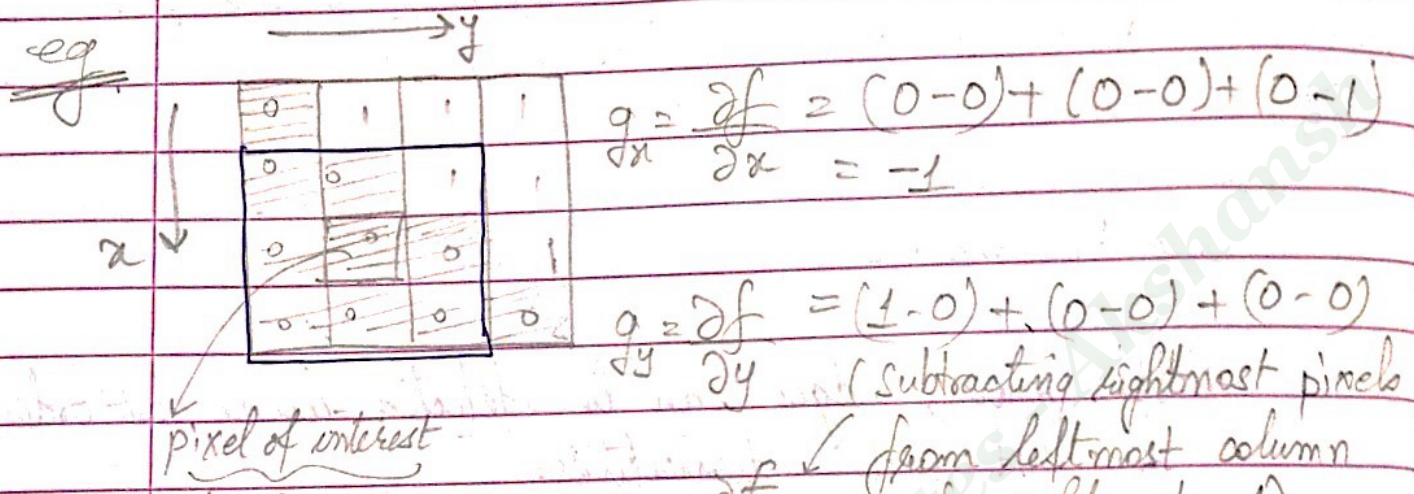 eg.
→ y
x ↓
0 1 1 1
0 0 1 1
0 0 0 1
0 0 0 0
gx = ∂f/∂x = (0-0) + (0-0) + (0-1)
= -1
gy = ∂f/∂y = (1-0) + (0-0) + (0-0)
(subtracting rightmost pixels
from leftmost column
pixel of interest
Akshansh